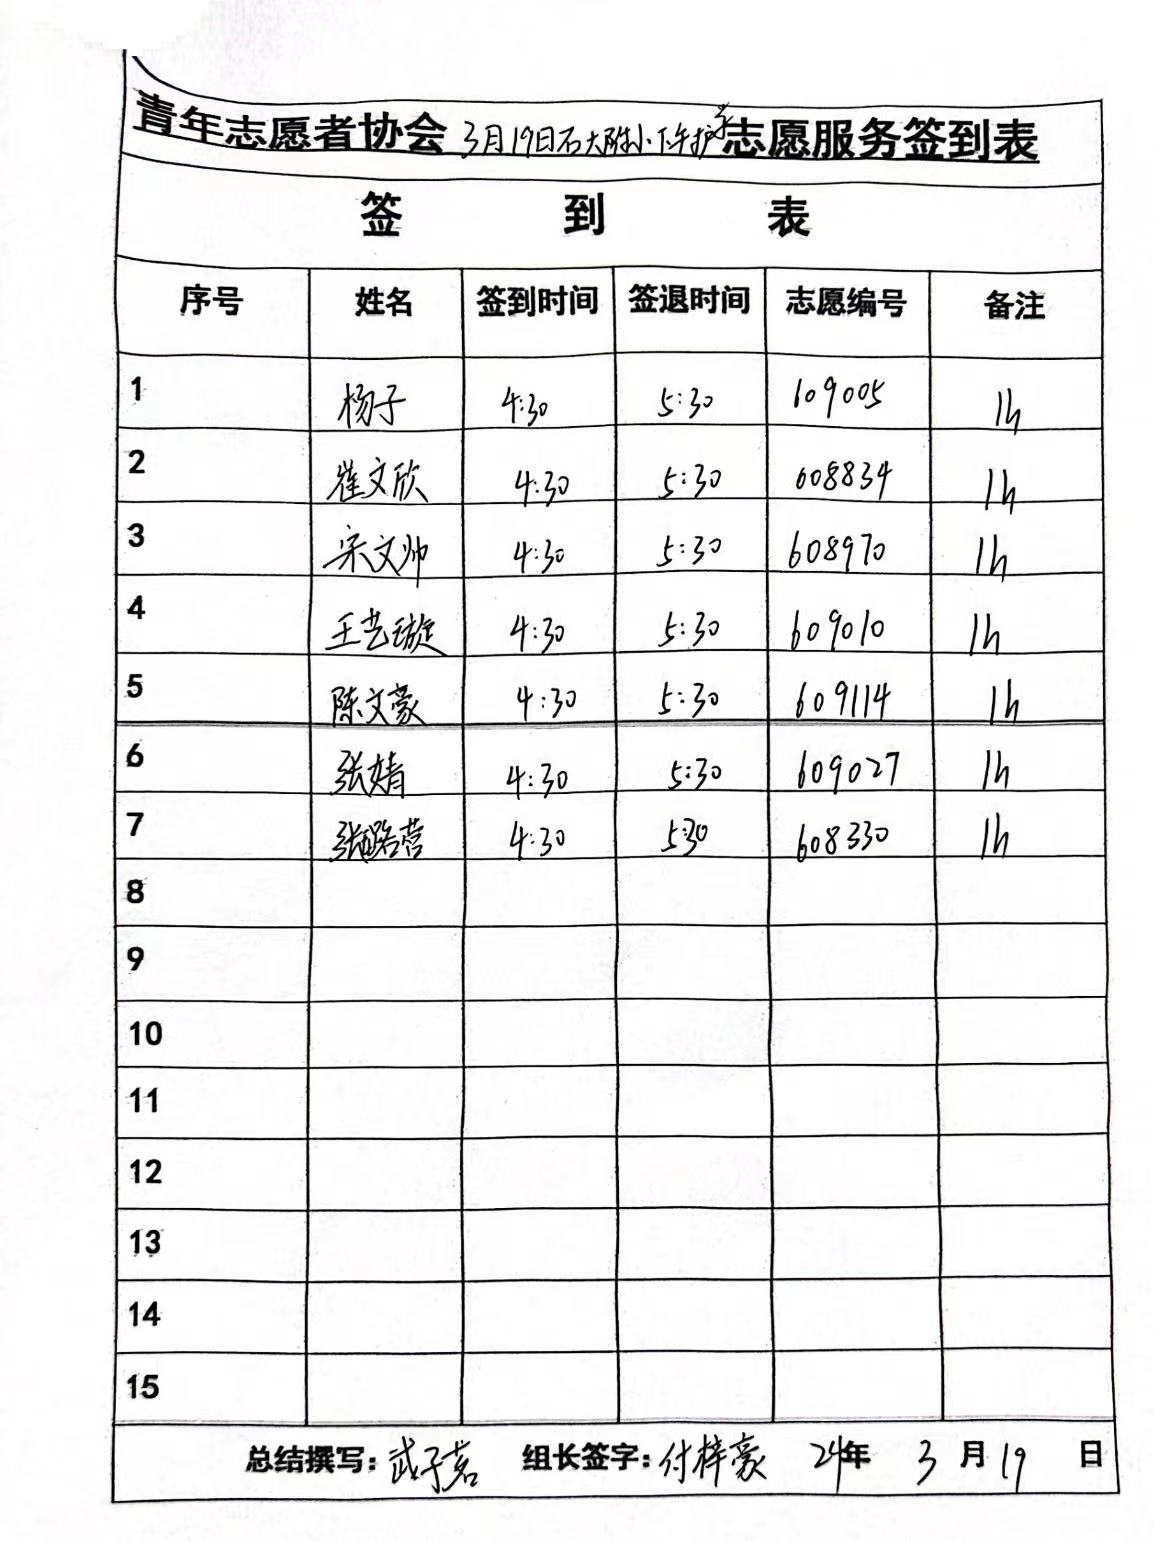 青年志愿者协会 3月19日石大附小下午护学志愿服务签到表
签 到 表
序号 姓名 签到时间 签退时间 志愿编号 备注
1 杨子 4:30 5:30 609005 1h
2 崔文欣 4:30 5:30 608834 1h
3 宋文帅 4:30 5:30 608970 1h
4 王艺璇 4:30 5:30 609010 1h
5 陈文豪 4:30 5:30 609114 1h
6 张婧 4:30 5:30 609027 1h
7 张路营 4:30 5:30 608330 1h
8
9
10
11
12
13
14
15
总结撰写: 武子茗 组长签字: 付梓豪 24年 3 月 19 日